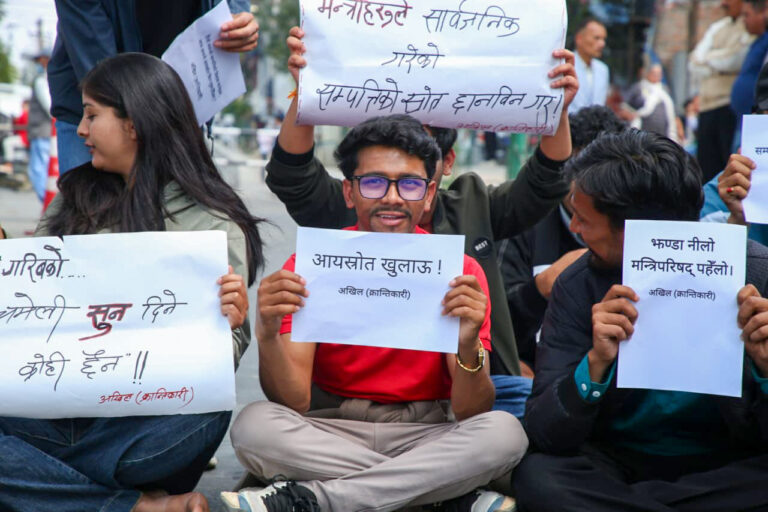 मन्त्रीहरूले सार्वजनिक
गरेको
सम्पत्तिको स्रोत छानविन गर!
अखिल (क्रान्तिकारी)
गरिवको....
चमेली सुन दिने
कोही छैन"!!
अखिल (क्रान्तिकारी)
आयस्रोत खुलाऊ !
अखिल (क्रान्तिकारी)
झण्डा नीलो
मन्त्रिपरिषद् पहेँलो।
अखिल (क्रान्तिकारी)